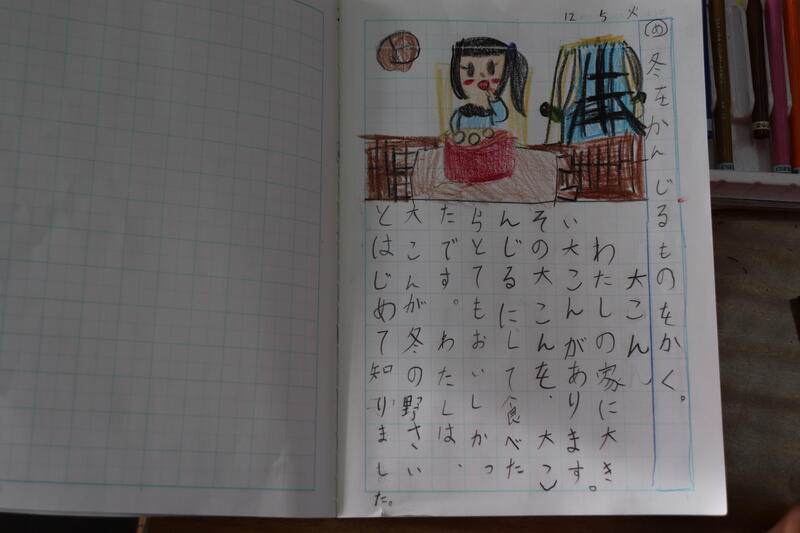 12 5 火
㋱ 冬をかんじるものをかく。
大こん
わたしの家に大き
い大こんがあります。
その大こんを、大こ
んじるにして食べた
らとてもおいしかっ
たです。わたしは、
大こんが冬の野さい
とはじめて知りました。